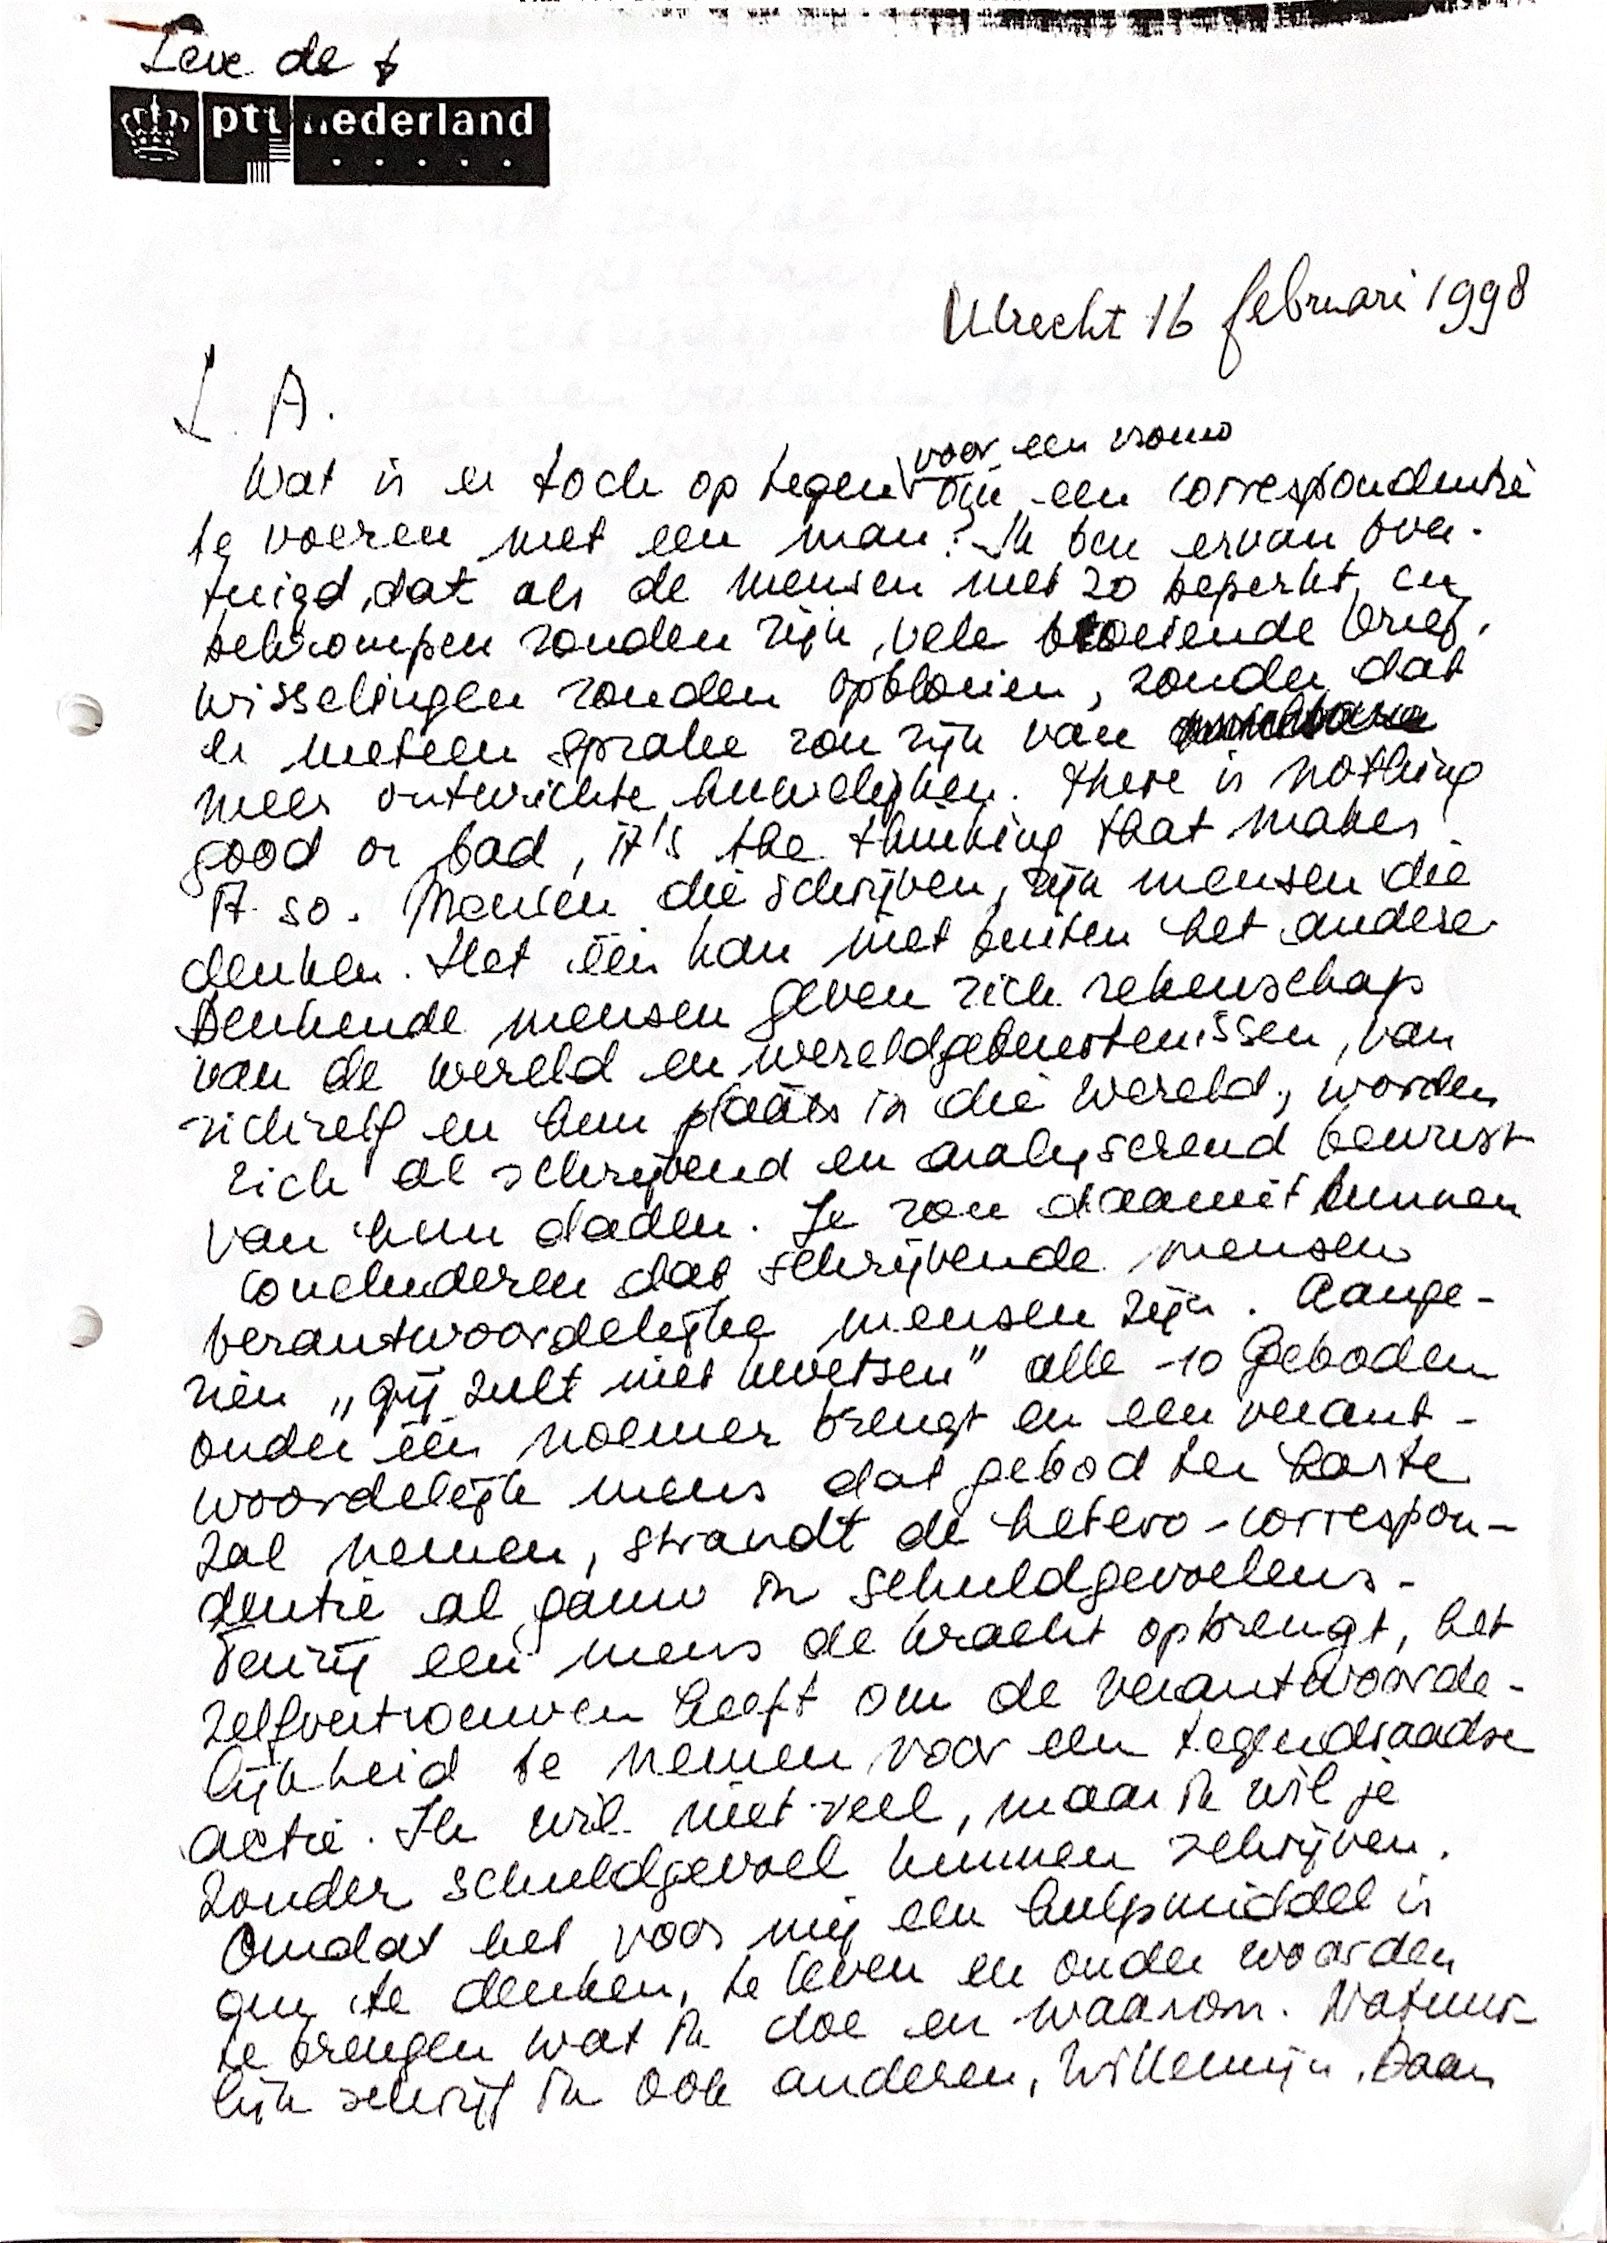 Leve de
ptt nederland
Utrecht 16 februari 1998
L. A.
voor een vrouw
Wat is er toch op tegen om een correspondentie
te voeren met een man? Ik ben ervan over-
tuigd, dat als de mensen niet zo beperkt en
bekrompen zouden zijn, vele boeiende brief-
wisselingen zouden opbloeien, zonder dat
er meteen sprake zou zijn van
meer ontwrichte huwelijken. There is nothing
good or bad, it's the thinking that makes
it so. Mensen die schrijven, zijn mensen die
denken. Het één kan niet buiten het andere.
Denkende mensen geven zich rekenschap
van de wereld en wereldgebeurtenissen, van
zichzelf en hun plaats in die wereld, worden
zich al schrijvend en analyserend bewust
van hun daden. Je zou daaruit kunnen
concluderen dat schrijvende mensen
verantwoordelijke mensen zijn. Aange-
zien „gij zult niet kwetsen" alle 10 Geboden
onder één noemer brengt en een verant-
woordelijk mens dat gebod ter harte
zal nemen, strandt de hetero-correspon-
dentie al gauw in schuldgevoelens.
Tenzij een mens de kracht opbrengt, het
zelfvertrouwen heeft om de verantwoorde-
lijkheid te nemen voor een tegendraadse
actie. Ik wil niet veel, maar ik wil je
zonder schuldgevoel kunnen schrijven.
Omdat het voor mij een hulpmiddel is
om te denken, te leven en onder woorden
te brengen wat ik doe en waarom. Natuur-
lijk schrijf ik ook anderen, Willemijn, Daan